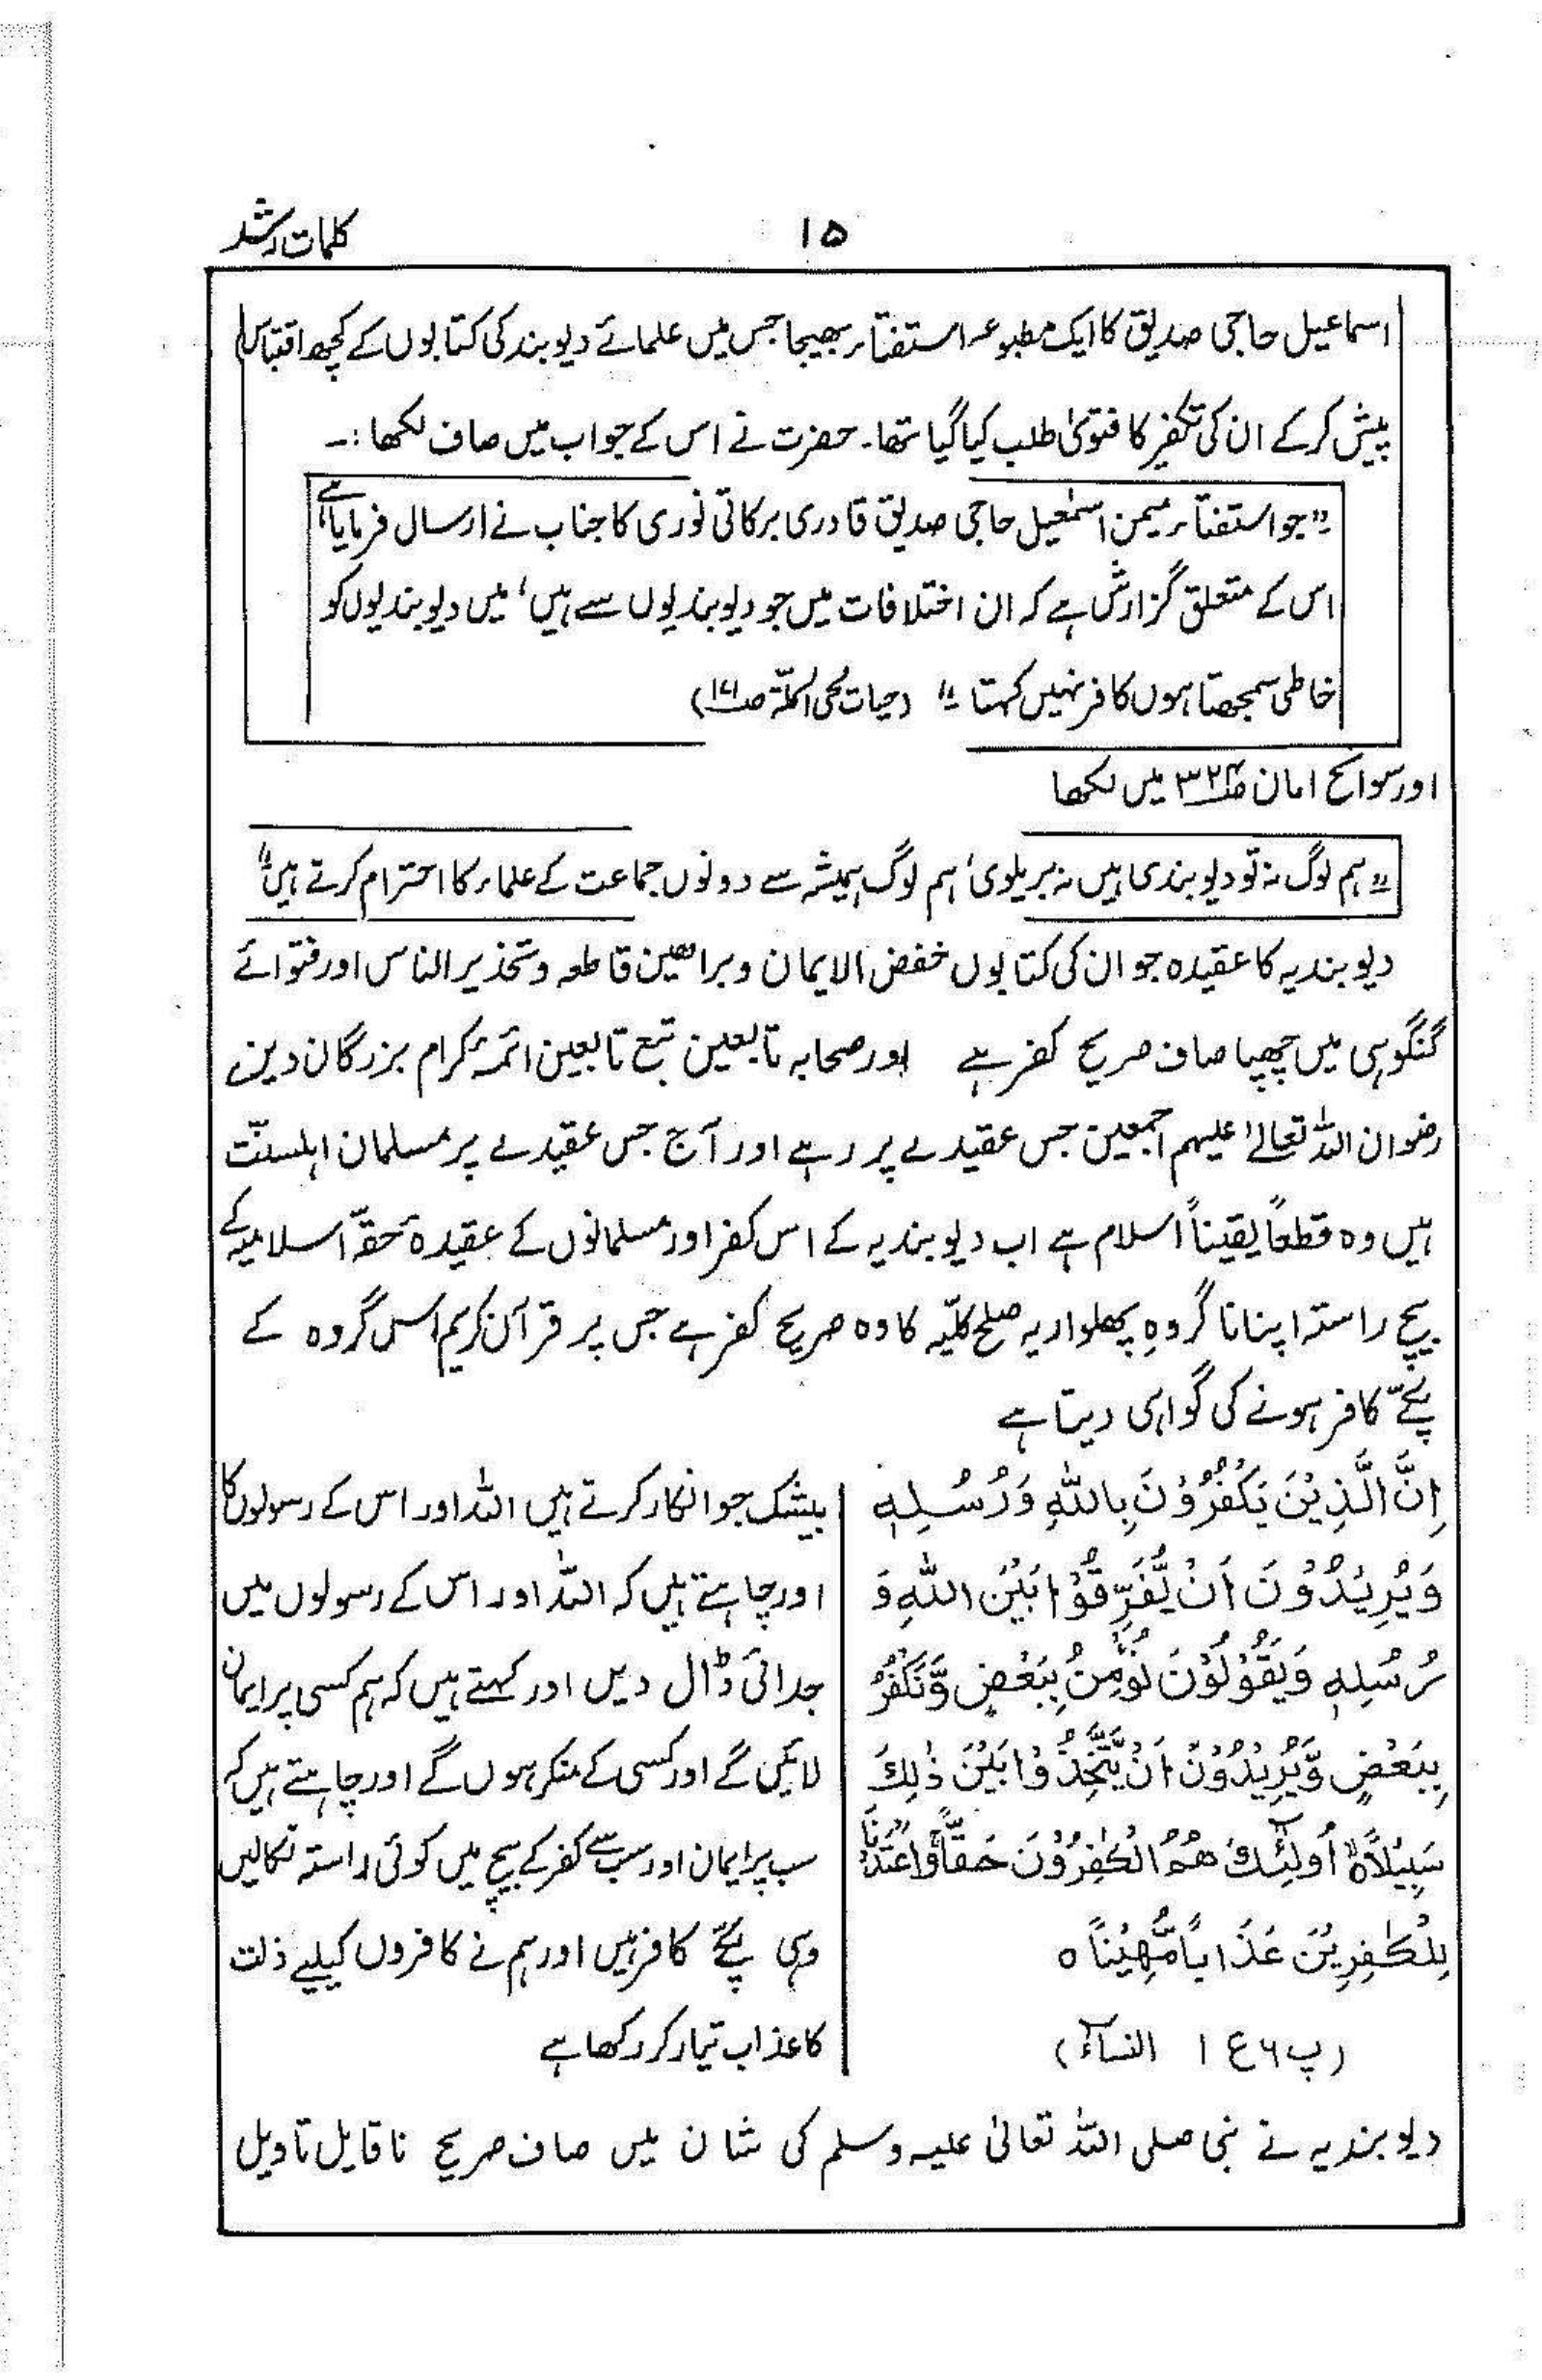 کلمات رشد
۱۵
اسماعیل حاجی صدیق کا ایک مطبوعہ استفتاء بھیجا جس میں علمائے دیوبند کی کتابوں کے کچھ اقتباس
پیش کرکے ان کی تکفیر کا فتویٰ طلب کیا گیا تھا۔ حضرت نے اس کے جواب میں صاف لکھا :۔
"جو استفتاء میمن اسمٰعیل حاجی صدیق قادری برکاتی نوری کا جناب نے ارسال فرمایا ہے
اس کے متعلق گزارش ہے کہ ان اختلافات میں جو دیوبندیوں سے ہیں، میں دیوبندیوں کو
خاطی سمجھتا ہوں کافر نہیں کہتا " (حیات محی الملّۃ
اور سوانح امان ص۳۲۴ میں لکھا
"ہم لوگ نہ تو دیوبندی ہیں نہ بریلوی، ہم لوگ ہمیشہ سے دونوں جماعت کے علماء کا احترام کرتے ہیں"
دیوبندیہ کا عقیدہ جو ان کی کتابوں خفض الایمان و براھین قاطعہ و تحذیر الناس اور فتوائے
گنگوہی میں چھپا صاف صریح کفر ہے اور صحابہ تابعین تبع تابعین ائمۂ کرام بزرگان دین
رضوان اللہ تعالیٰ علیہم اجمعین جس عقیدے پر رہے اور آج جس عقیدے پر مسلمان اہلسنّت
ہیں وہ قطعاً یقیناً اسلام ہے اب دیوبندیہ کے اس کفر اور مسلمانوں کے عقیدۂ حقّہ اسلامیہ کے
بیچ راستہ اپنانا گروہِ پھلواریہ صلح کلیّہ کا وہ صریح کفر ہے جس پر قرآن کریم اس گروہ کے
پکّے کافر ہونے کی گواہی دیتا ہے
اِنَّ الَّذِیْنَ یَکْفُرُوْنَ بِاللّٰهِ وَرُسُلِهٖ
وَیُرِیْدُوْنَ اَنْ یُّفَرِّقُوْا بَیْنَ اللّٰهِ وَ
رُسُلِهٖ وَیَقُوْلُوْنَ نُؤْمِنُ بِبَعْضٍ وَّنَکْفُرُ
بِبَعْضٍ وَّیُرِیْدُوْنَ اَنْ یَّتَّخِذُوْا بَیْنَ ذٰلِكَ
سَبِیْلًا ہ اُولٰٓئِكَ هُمُ الْکٰفِرُوْنَ حَقًّا وَاَعْتَدْنَا
لِلْکٰفِرِیْنَ عَذَابًا مُّهِیْنًا ہ
(پ ۶ ع ۱ النسآء)
بیشک جو انکار کرتے ہیں اللہ اور اس کے رسولوں کا
اور چاہتے ہیں کہ اللہ اور اس کے رسولوں میں
جدائی ڈال دیں اور کہتے ہیں کہ ہم کسی پر ایمان
لائیں گے اور کسی کے منکر ہوں گے اور چاہتے ہیں کہ
سب پر ایمان اور سب سے کفر کے بیچ میں کوئی راستہ نکالیں
وہی پکّے کافر ہیں اور ہم نے کافروں کیلیے ذلت
کا عذاب تیار کر رکھا ہے
دیوبندیہ نے نبی صلی اللہ تعالیٰ علیہ وسلم کی شان میں صاف صریح ناقابل تاویل